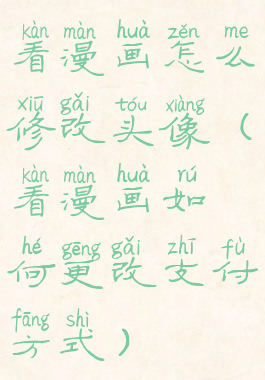 kàn màn huà zěn me
看漫画怎么
xiū gǎi tóu xiàng
修改头像（
kàn màn huà rú
看漫画如
hé gēng gǎi zhī fù
何更改支付
fāng shì
方式）